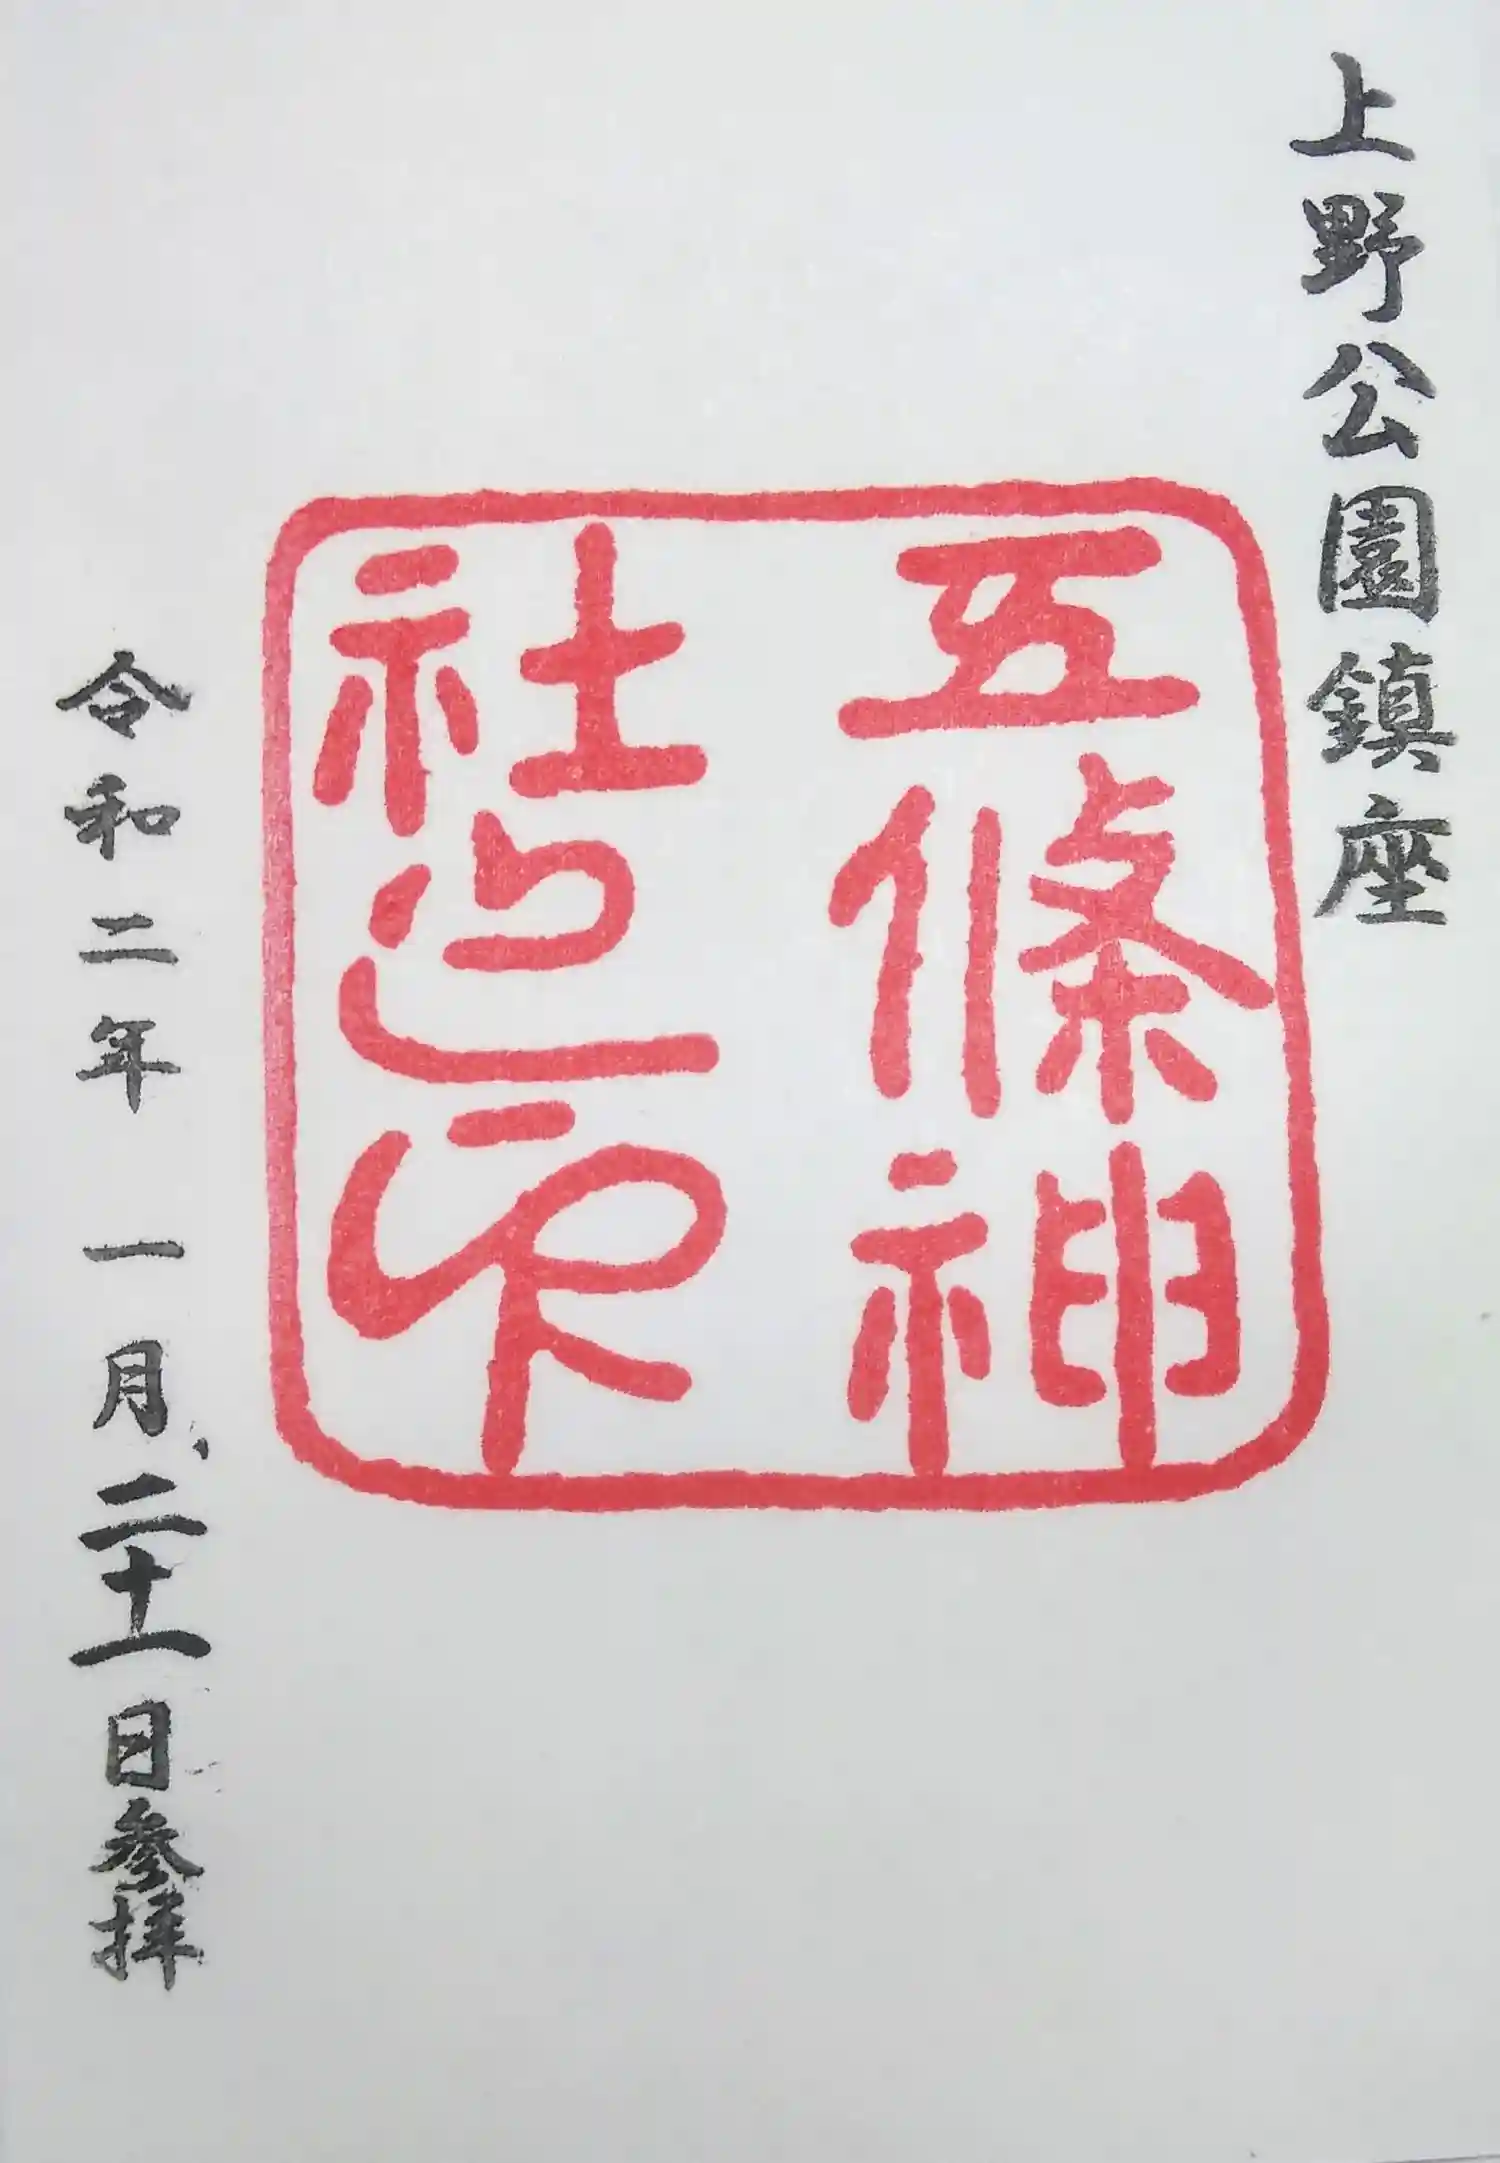 上野公園鎮座
五條神
社之印
令和二年 一月 二十一日参拝